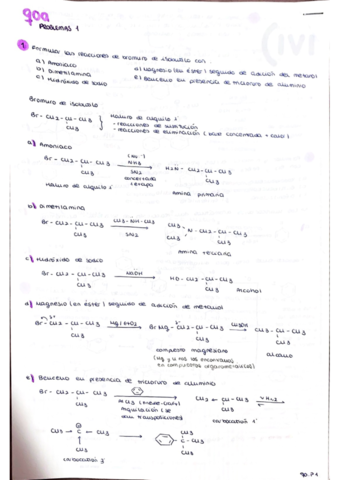 PROBLEMAS 1
1 Formular las reacciones de bromuro de isobutilo con
a) Amoniaco
b) Dimetilamina
c) Hidróxido de sodio
d) Magnesio (en éster) seguido de adición de metanol
e) Benceno en presencia de tricloruro de aluminio
Bromuro de isobutilo
Br - CH2 - CH - CH3
CH3
Haluro de alquilo
- reacciones de sustitución
- reacciones de eliminación (base concentrada + calor)
a) Amoniaco
Br - CH2 - CH - CH3
CH3
NH3
SN2
concertada
1 etapa
H2N - CH2 - CH - CH3
CH3
Haluro de alquilo 1º
Amina primaria
b) Dimetilamina
Br - CH2 - CH - CH3
CH3
CH3 - NH - CH3
SN2
CH3
CH3
N - CH2 - CH - CH3
CH3
Amina terciaria
c) Hidróxido de sodio
Br - CH2 - CH - CH3
CH3
NaOH
HO - CH2 - CH - CH3
CH3
Alcohol
d) Magnesio (en éster) seguido de adición de metanol
Br - CH2 - CH - CH3
CH3
Br Mg - CH2 - CH - CH3
CH3
CH3OH
CH3 - CH - CH3
CH3
compuesto magnesiano
alcano
e) Benceno en presencia de tricloruro de aluminio
Br - CH2 - CH - CH3
CH3
CH2 - CH - CH3
CH3
carbocatión 1º
CH3 - C - CH3
CH3
- C - CH3
CH3
carbocatión 3º